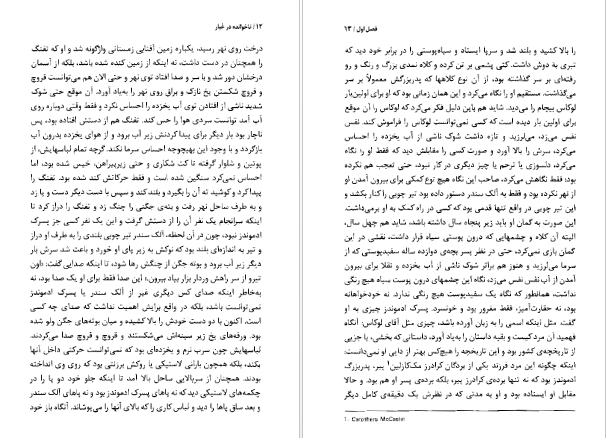 ۱۲ / ناخوانده در غبار
درخت روی نهر رسید، یکباره زمین آفتابی زمستانی واژگونه شد و او که تفنگ
را همچنان در دست داشت، نه اینکه از زمین کنده شده باشد، بلکه از آسمان
درخشان دور شد و با سر و صدا افتاد توی نهر و حتی الان هم می‌توانست قروچ
و قروچ شکستن یخ نازک و براق روی نهر را به‌یاد آورد. آن موقع حتی شوک
شدید ناشی از افتادن توی آب یخزده را احساس نکرد و فقط وقتی دوباره روی
آب آمد توانست سردی هوا را حس کند. تفنگ هم از دستش افتاده بود، پس
ناچار بود بار دیگر برای پیدا کردنش زیر آب برود و از هوای یخزده بدرون آب
بازگردد و با وجود این بهیچوجه احساس سرما نکند. گرچه تمام لباسهایش، از
پوتین و شلوار گرفته تا کت شکاری و حتی زیرپیراهن، خیس شده بود، اما
احساس نمی‌کرد سنگین شده است و فقط حرکاتش کند شده بود. تفنگ را
پیدا کرد و کوشید ته آن را بگیرد و بلند کند و سپس با دست دیگر دست و پا زد
و به طرف ساحل نهر رفت و بته‌ی جگنی را چنگ زد و تفنگ را دراز کرد تا
اینکه سرانجام یک نفر آن را از دستش گرفت و این یک نفر کسی جز پسرک
ادموندز نبود، چون در آن لحظه، الک سندر تیر چوبی بلندی را به طرف او دراز
و تیر به اندازه‌ای بلند بود که نوکش به زیر پای او خورد و باعث شد سرش بار
دیگر زیر آب برود و بوته جگن از چنگش رها شود، تا اینکه صدایی گفت: «اون
تیرو از سر راهش وردار بزار بیاد بیرون»، و این صدا فقط برای او یک صدا بود، نه
به‌خاطر اینکه صدای کس دیگری غیر از الک سندر یا پسرک ادموندز
نمی‌توانست باشد، بلکه در واقع برایش اهمیت نداشت که صدای چه کسی
است. اکنون با دو دست خودش را بالا کشیده و میان بوته‌های جگن ولو شده
بود. ورقه‌های یخ زیر سینه‌اش می‌شکستند و قروچ و قروچ صدا می‌کردند.
لباسهایش چون سرب نرم و یخزده‌ای بود که نمی‌توانست حرکتی داخل آنها
بکند، بلکه همچون بارانی لاستیکی یا روکش برزنتی بود که روی وی انداخته
بودند. همچنان از سربالایی ساحل بالا آمد تا اینکه جلو خود دو پا را در
چکمه‌های لاستیکی دید که نه پاهای پسرک ادموندز بود و نه پاهای الک سندر
و بعد ساق پاها را دید و لباس کاری را که بالای آنها را می‌پوشاند. آنگاه باز خود
فصل اول / ۱۳
را بالا کشید و بلند شد و سرپا ایستاد و سیاه‌پوستی را در برابر خود دید که
تبری به دوش داشت. کتی پشمی بر تن کرده و کلاه نمدی بزرگ و رنگ و رو
رفته‌ای بر سر گذاشته بود، از آن نوع کلاهها که پدربزرگش معمولاً بر سر
می‌گذاشت. مستقیم او را نگاه می‌کرد و این همان زمانی بود که او برای اولین‌بار
لوکاس بیچام را می‌دید. شاید هم باین دلیل فکر می‌کرد که لوکاس را آن موقع
برای اولین بار دیده است که کسی نمی‌توانست لوکاس را فراموش کند. نفس
نفس می‌زد، می‌لرزید و تازه داشت شوک ناشی از آب یخزده را احساس
می‌کرد، سرش را بالا آورد و صورت کسی را مقابلش دید که فقط او را نگاه
می‌کرد، دلسوزی یا ترحم یا چیز دیگری در کار نبود، حتی تعجب هم نکرده
بود؛ فقط نگاهش می‌کرد، صاحب این نگاه هیچ نوع کمکی برای بیرون آمدن او
از نهر نکرده بود و فقط به الک سندر دستور داده بود تیر چوبی را کنار بکشد و
این تیر چوبی در واقع تنها قدمی بود که کسی در راه کمک به او برمی‌داشت.
این صورت به گمان او باید زیر پنجاه سال داشته باشد، شاید هم چهل سال،
البته آن کلاه و چشمهایی که درون پوستی سیاه قرار داشت، نقشی در این
گمان بازی نمی‌کرد، حتی در نظر پسر بچه‌ی دوازده ساله سفیدپوستی که از
سرما می‌لرزید و هنوز هم براثر شوک ناشی از آب یخزده و تقلا برای بیرون
آمدن از آب نفس نفس می‌زد، نگاه این چشمهای درون پوست سیاه هیچ رنگی
نداشت، همانطور که نگاه یک سفیدپوست هیچ رنگی ندارد، نه خودخواهانه
بود، نه حقارت‌آمیز، فقط مغرور بود و خونسرد. پسرک ادموندز چیزی به او
گفت. مثل اینکه اسمی را به زبان آورده باشد، چیزی مثل آقای لوکاس: آنگاه
فهمید آن مرد کیست و بقیه داستان را به‌یاد آورد، داستانی که بخشی، یا جزیی
از تاریخچه‌ی کشور بود و این تاریخچه را هیچکس بهتر از دایی او نمی‌دانست:
اینکه چگونه این مرد فرزند یکی از بردگان کرادرز مک‌کازلین¹ پیر، پدربزرگ
ادموندز بود که نه تنها برده‌ی کرادرز پیر، بلکه برده‌ی پسر او هم بود. و حالا
مقابل او ایستاده بود و او به مدتی که در نظرش یک دقیقه‌ی کامل دیگر
1. Carothers McCaslin